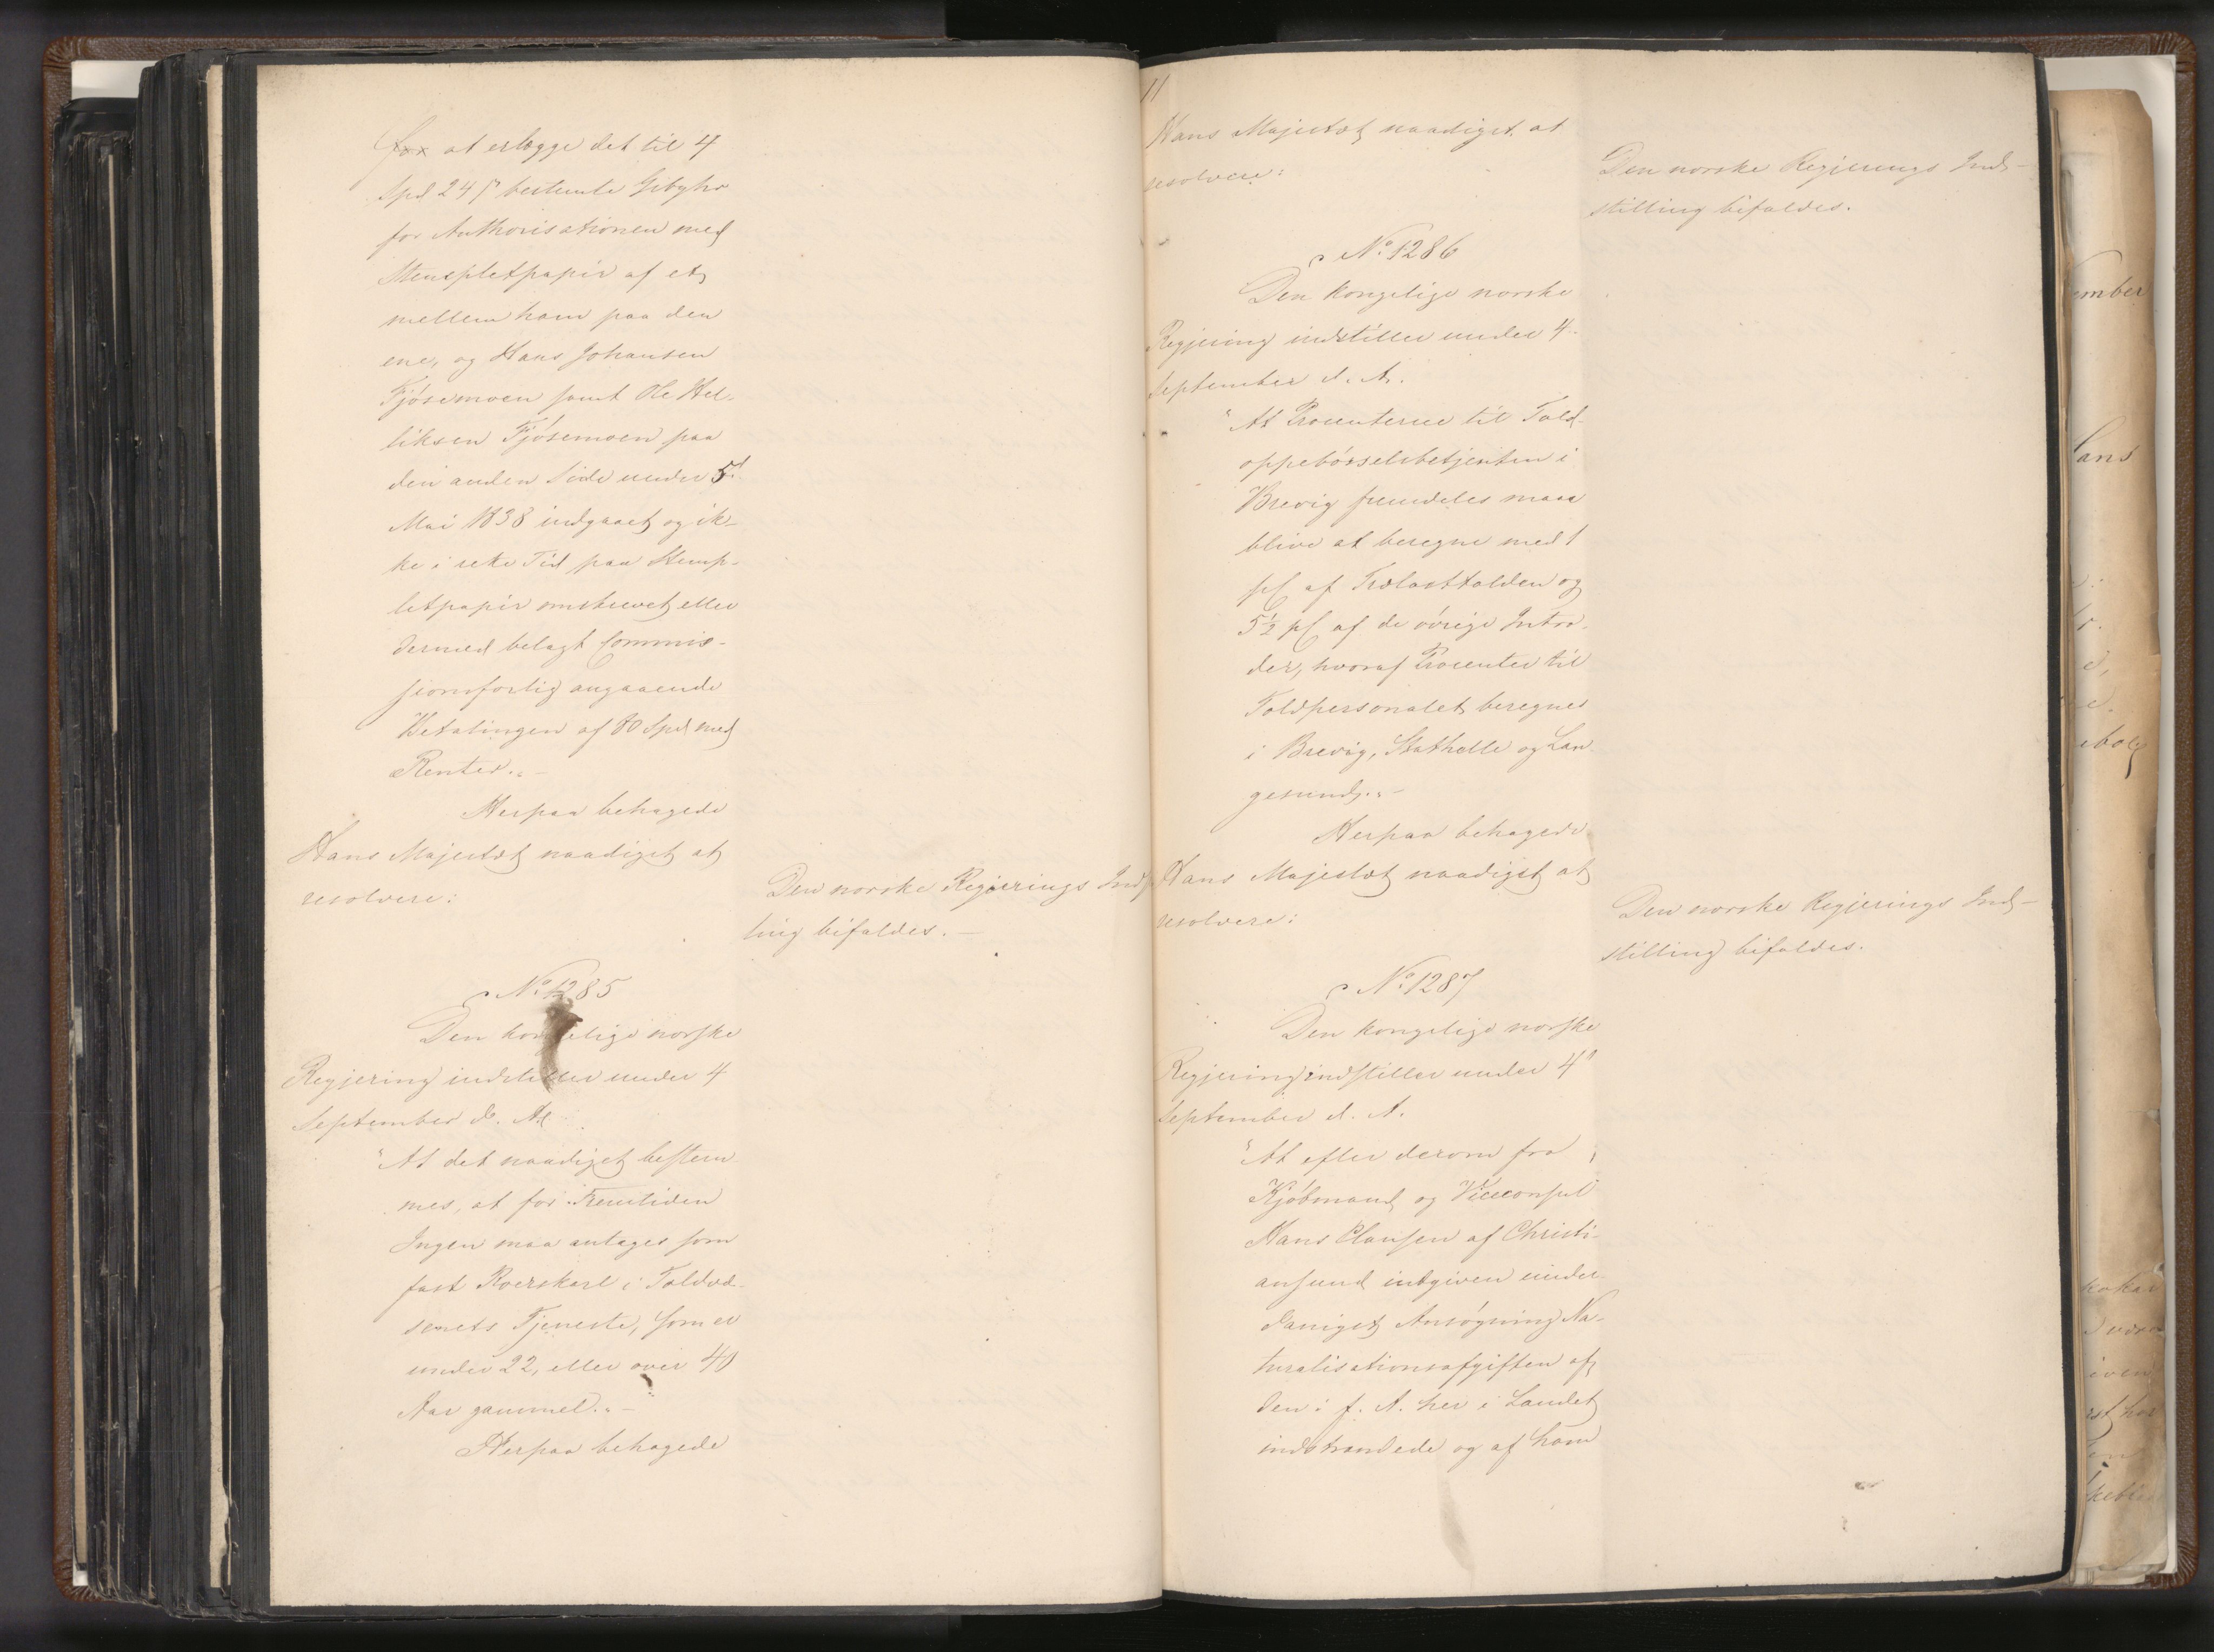 for at erlægge det til 4
Spd 24 ß bestemte Gebyhr
for Authorisationen med
Stempletpapir af et
mellem ham paa den
ene, og Hans Johansen
Fjøsemoen samt Ole Hel-
liksen Fjøsemoen paa
den anden Side under 5t
Mai 1838 indgaaet og ik-
ke i rette Tid paa Stemp-
letpapir omskrevet eller
dermed belagt Commis-
sionsforlig angaaende
Betalingen af 80 Spd med
Renter."-
Herpaa behagede
Hans Majestæt naadigst at
resolvere:
Den norske Regjerings Indst
ling bifaldes. -
No 1285
Den kongelige norske
Regjering indstiller under 4
September d. A.
"At det naadigst bestem
mes, at for Fremtiden
Ingen maa antages som
fast Roerskarl i Toldvæ-
senets Tjeneste, som er
under 22, eller over 40
Aar gammel."-
Herpaa behagede
Hans Majestæt naadigst at
resolvere:
Den norske Regjerings Ind-
stilling bifaldes.
No 1286
Den kongelige norske
Regjering indstiller under 4
September d. A.
"At Procenterne til Told-
oppebørselsbetjenten i
Brevig fremdeles maa
blive at beregne med 1
pC af Trælasttolden og
5½ pC af de øvrige Intra-
der, hvoraf Procenter til
Toldpersonalet beregnes
i Brevig, Stathelle og Lan
gesund."-
Herpaa behagede
Hans Majestæt naadigst at
resolvere:
Den norske Regjerings Ind-
stilling bifaldes.
No 1287
Den kongelige norske
Regjering indstiller under 4
September d. A.
"At efter derom fra
Kjøbmand og Viceconsul
Hans Clausen af Christi-
ansund indgiven under
danigst Ansøgning Na-
turalisationsafgiften af
den i f. A. her i Landet
indstrandede og af ham